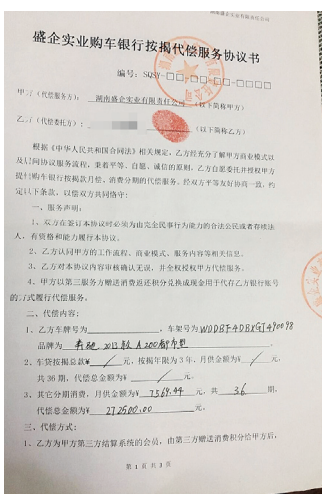 湖南盛企实业有限责任公司
盛企实业购车银行按揭代偿服务协议书
编号：SQSY-□□-□□-□□-□□□□
甲方（代偿服务方）： 湖南盛企实业有限责任公司 （以下简称甲方）
乙方（代偿委托方）： （以下简称乙方）
根据《中华人民共和国合同法》相关规定，乙方经充分了解甲方商业模式以
及订同协议服务流程，秉着平等、自愿、诚信的原则，乙方自愿委托并授权甲方
提供购车银行按揭款月偿、消费分期的代偿服务。经双方平等友好协商一致，约
定以下条款，以偿双方共同恪守：
一、服务声明：
1、双方在签订本协议时必须为由完全民事行为能力的合法公民或者有续法
人，有资格和能力履行本协议。
2、乙方认同甲方的工作流程、商业模式、服务内容等相关信息。
3、乙方对本协议内容审核确认无误，并全权授权甲方代偿服务。
4、甲方以第三服务方赠送消费返还积分兑换成现金用于代存乙方银行账号
的方式履行代偿服务。
二、代偿内容：
1、乙方车牌号为 ，车架号为WDDBF4DBXGJ490098
品牌为 奔驰 2013款 A200都市型
2、车贷按揭总款¥ / 元，按揭年限为3年，月供金额为¥ / 元，
共36期，代偿总金额为¥ / 元。
3、其它分期消费，月供金额为¥ 7569.44 元，共 36 期，
代偿总金额为¥ 272500.00 元。
三、代偿方式：
1、乙方为甲方第三方结算系统的会员，由第三方赠送消费积分给甲方后，
第 1 页 共 3 页